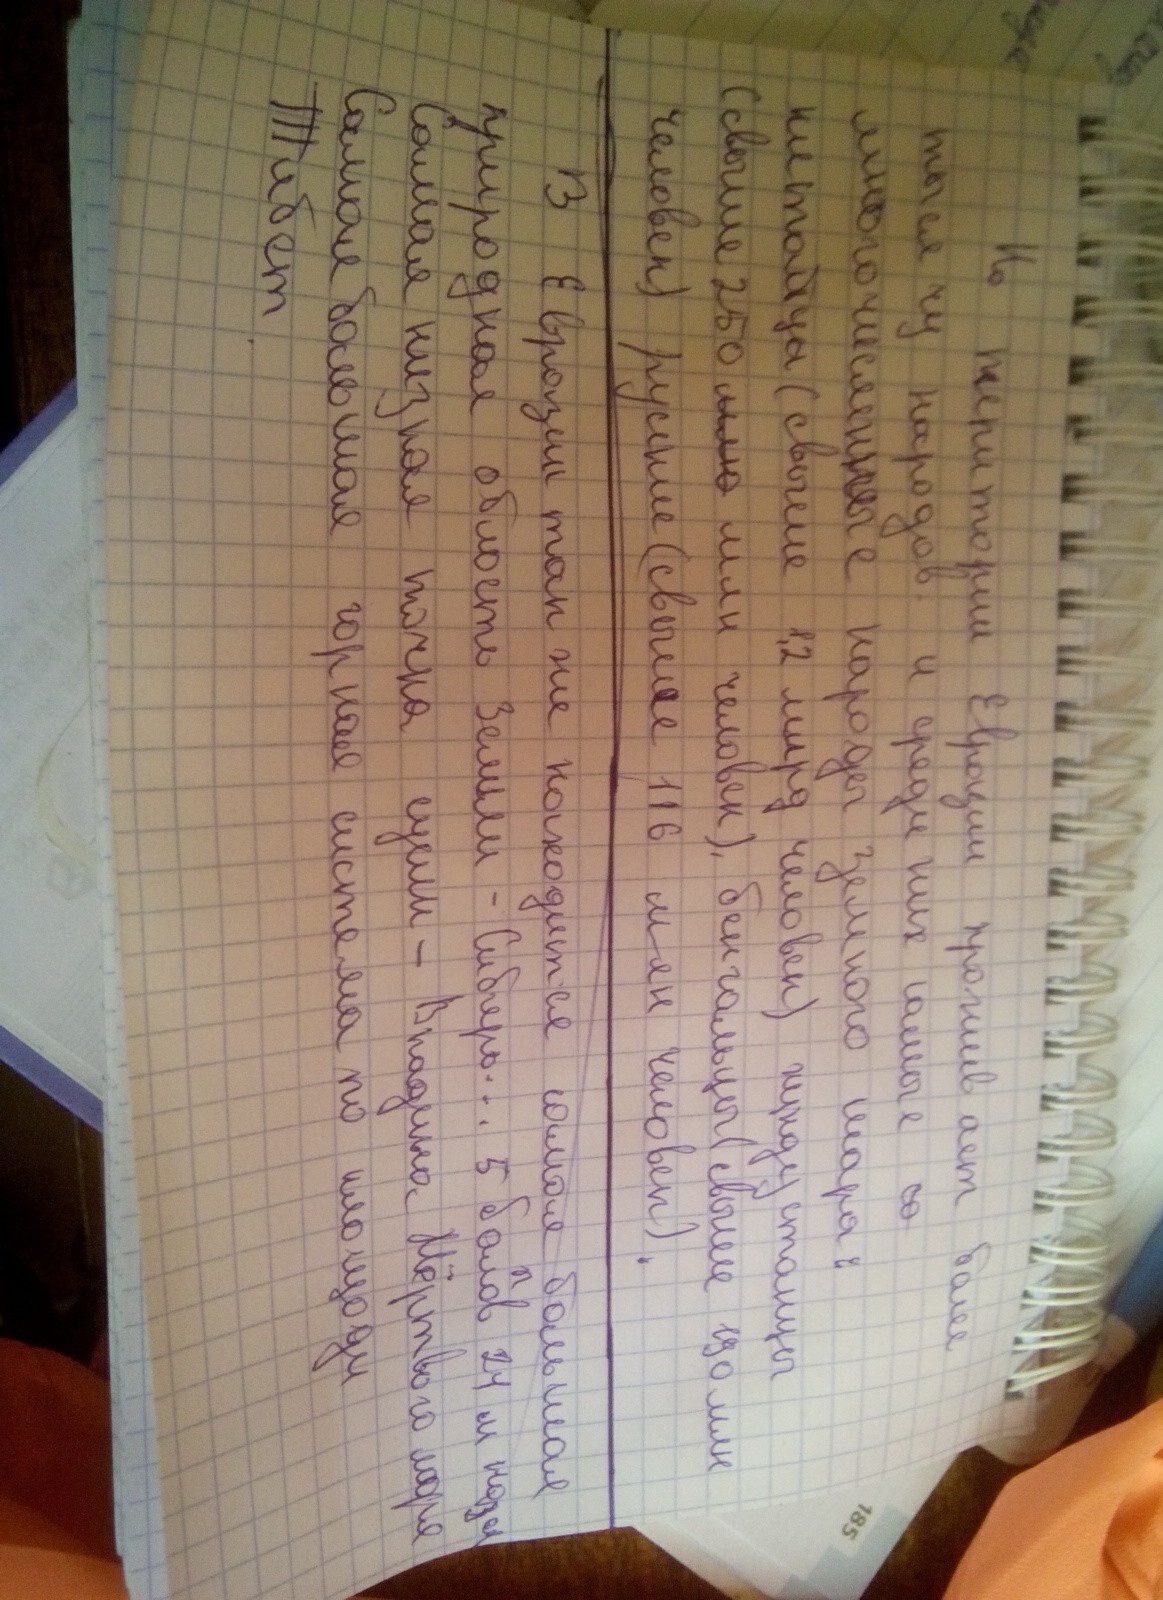 На территории Евразии проживает более
тысячу народов. и среди них самые
многочисленные народы земного шара:
китайцы (свыше 1,2 млрд человек) хиндустанцы
(свыше 250 млн человек), бенгальцы (свыше 190 млн
человек) русские (свыше 116 м-ян человек).
В Евразии так же находится самая большая
природная область Земли - Сибирь... 5 балов 24 м назад
Самая низкая точка суши - Впадина Мёртвого моря
Самая большая горная система по площади
Тибет
185